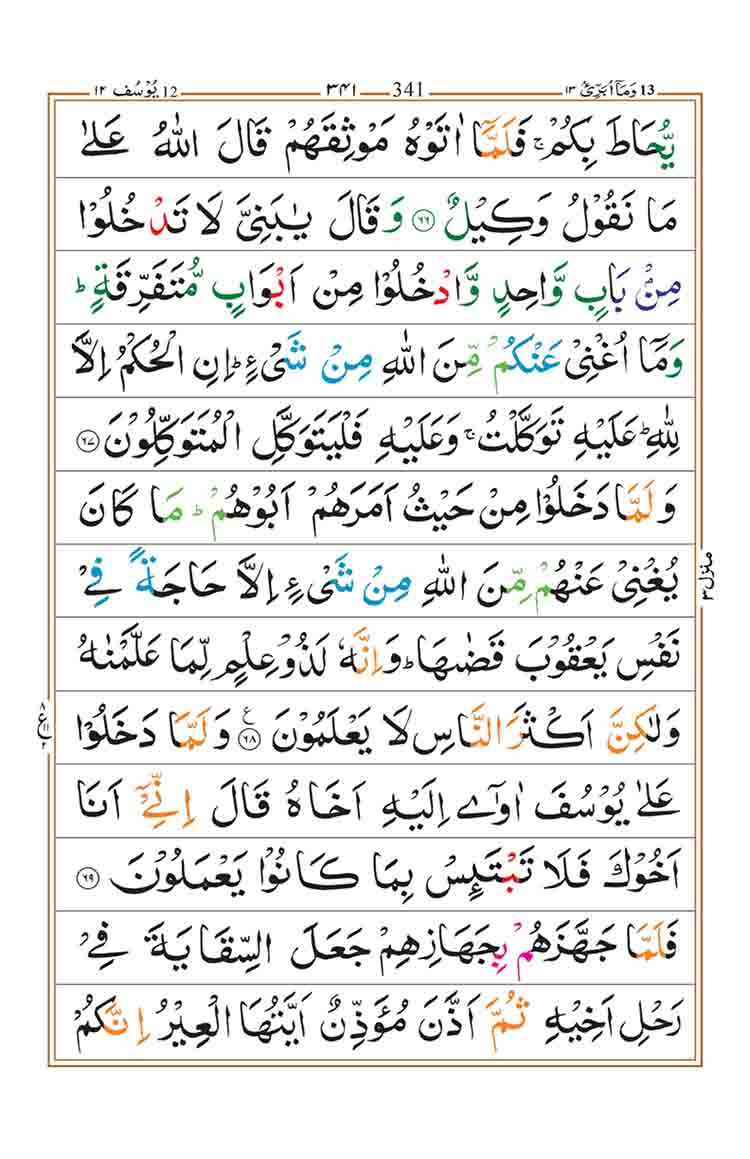 13 وَمَاۤ اُبَرِّئُ ۱۳ 341 ۳۴۱ 12 يُوۡسُف ۱۲
يُّحَاطَ بِكُمۡ‌ۚ فَلَمَّاۤ اٰتَوۡهُ مَوۡثِقَهُمۡ قَالَ اللّٰهُ عَلٰى
مَا نَقُوۡلُ وَكِيۡلٌ ﴿۶۶﴾ وَقَالَ يٰبَنِىَّ لَا تَدۡخُلُوۡا
مِنۡۢ بَابٍ وَّاحِدٍ وَّادۡخُلُوۡا مِنۡ اَبۡوَابٍ مُّتَفَرِّقَةٍ‌ؕ
وَمَاۤ اُغۡنِىۡ عَنۡكُمۡ مِّنَ اللّٰهِ مِنۡ شَىۡءٍ‌ؕ اِنِ الۡحُكۡمُ اِلَّا
لِلّٰهِ‌ؕ عَلَيۡهِ تَوَكَّلۡتُ‌ۚ وَعَلَيۡهِ فَلۡيَتَوَكَّلِ الۡمُتَوَكِّلُوۡنَ ﴿۶۷﴾
وَلَمَّا دَخَلُوۡا مِنۡ حَيۡثُ اَمَرَهُمۡ اَبُوۡهُمۡؕ مَا كَانَ
يُغۡنِىۡ عَنۡهُمۡ مِّنَ اللّٰهِ مِنۡ شَىۡءٍ اِلَّا حَاجَةً فِىۡ
نَفۡسِ يَعۡقُوۡبَ قَضٰٮهَا‌ؕ وَاِنَّهٗ لَذُوۡ عِلۡمٍ لِّمَا عَلَّمۡنٰهُ
وَلٰكِنَّ اَكۡثَرَ النَّاسِ لَا يَعۡلَمُوۡنَ ﴿۶۸﴾ وَلَمَّا دَخَلُوۡا
عَلٰى يُوۡسُفَ اٰوٰٓى اِلَيۡهِ اَخَاهُ‌ قَالَ اِنِّىۡۤ اَنَا
اَخُوۡكَ فَلَا تَبۡتَئِسۡ بِمَا كَانُوۡا يَعۡمَلُوۡنَ ﴿۶۹﴾
فَلَمَّا جَهَّزَهُمۡ بِجَهَازِهِمۡ جَعَلَ السِّقَايَةَ فِىۡ
رَحۡلِ اَخِيۡهِ ثُمَّ اَذَّنَ مُؤَذِّنٌ اَيَّتُهَا الۡعِيۡرُ اِنَّكُمۡ
منزل ۳
ع